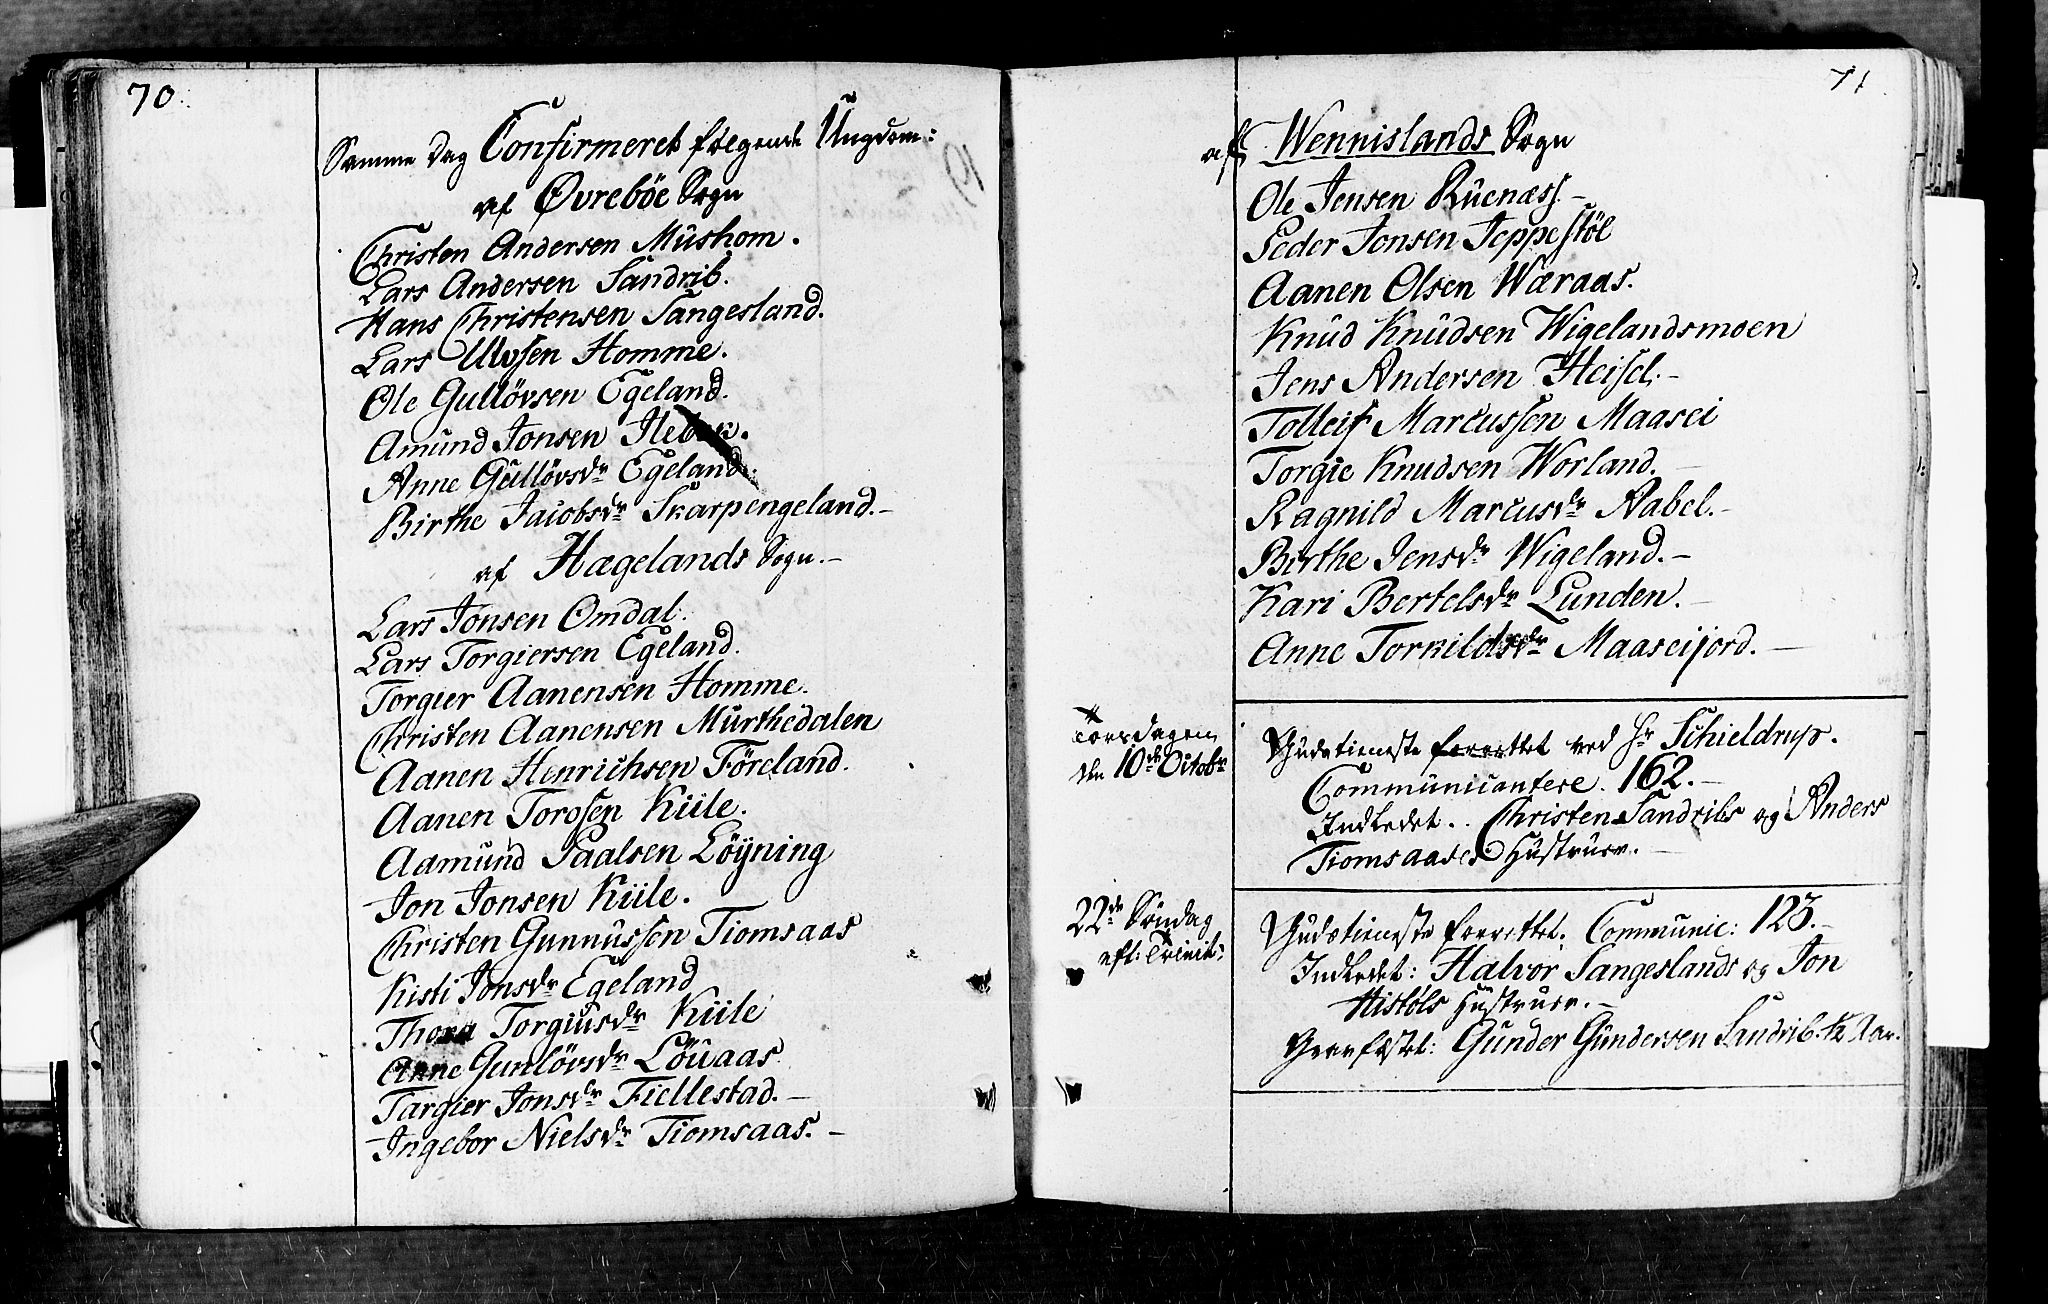 70
Samme Dag Confirmeret følgende Ungdom:
af Øvreböe Sogn
Christen Andersen Mushom.
Lars Andersen Sandrib.
Hans Christensen Sangesland.
Lars Ulvsen Homme.
Ole Gullövsen Egeland.
Amund Jonsen
Anne Gullövsdr Egeland.
Birthe Jacobsdr Skarpengeland.-
af Hægelands Sogn.-
Lars Jonsen Omdal.
Lars Torgiersen Egeland.
Torgier Aanensen Homme.
Christen Aanensen Murthedalen
Aanen Henrichsen Föreland.
Aanen Torosen Kiile.
Aamund Paalsen Löyning
Jon Jonsen Kiile.
Christen Gunnussen Tiomsaas
Kisti Jonsdr Egeland
Thora Torgiusdr Kiile
Anne Gunlövsdr Löuaas
Targier Jonsdr Fiellestad.-
Ingebor Nielsdr Tiomsaas.-
71
af Wennislands Sogn
Ole Jensen Ruenæss.-
Peder Jonsen Jeppestöl
Aanen Olsen Wæraas.
Knud Knudsen Wigelandsmoen
Jens Andersen Heisel.-
Tolleif Marcussen Maasei
Torgie Knudsen Worland.-
Ragnild Marcusdr Aabel.-
Birthe Jensdr Wigeland.-
Kari Bertelsdr Lunden.-
Anne Torkildsdr Maaseijord.-
Torsdagen
den 10de Octobr
Gudstieneste forrettet ved Hr Schieldrup.
Communicantere. 162.-
Indledet.. Christen Sandribs og Anders
Tiomsaases Hustruer.-
22de Søndag
eft: Trinit:
Gudstieneste forrettet. Communic: 123.-
Indledet: Halvor Sangeslands og Jon
Histöls Hustruer.-
Gravfæstet: Gunder Gundersen Sandrib. Aar.